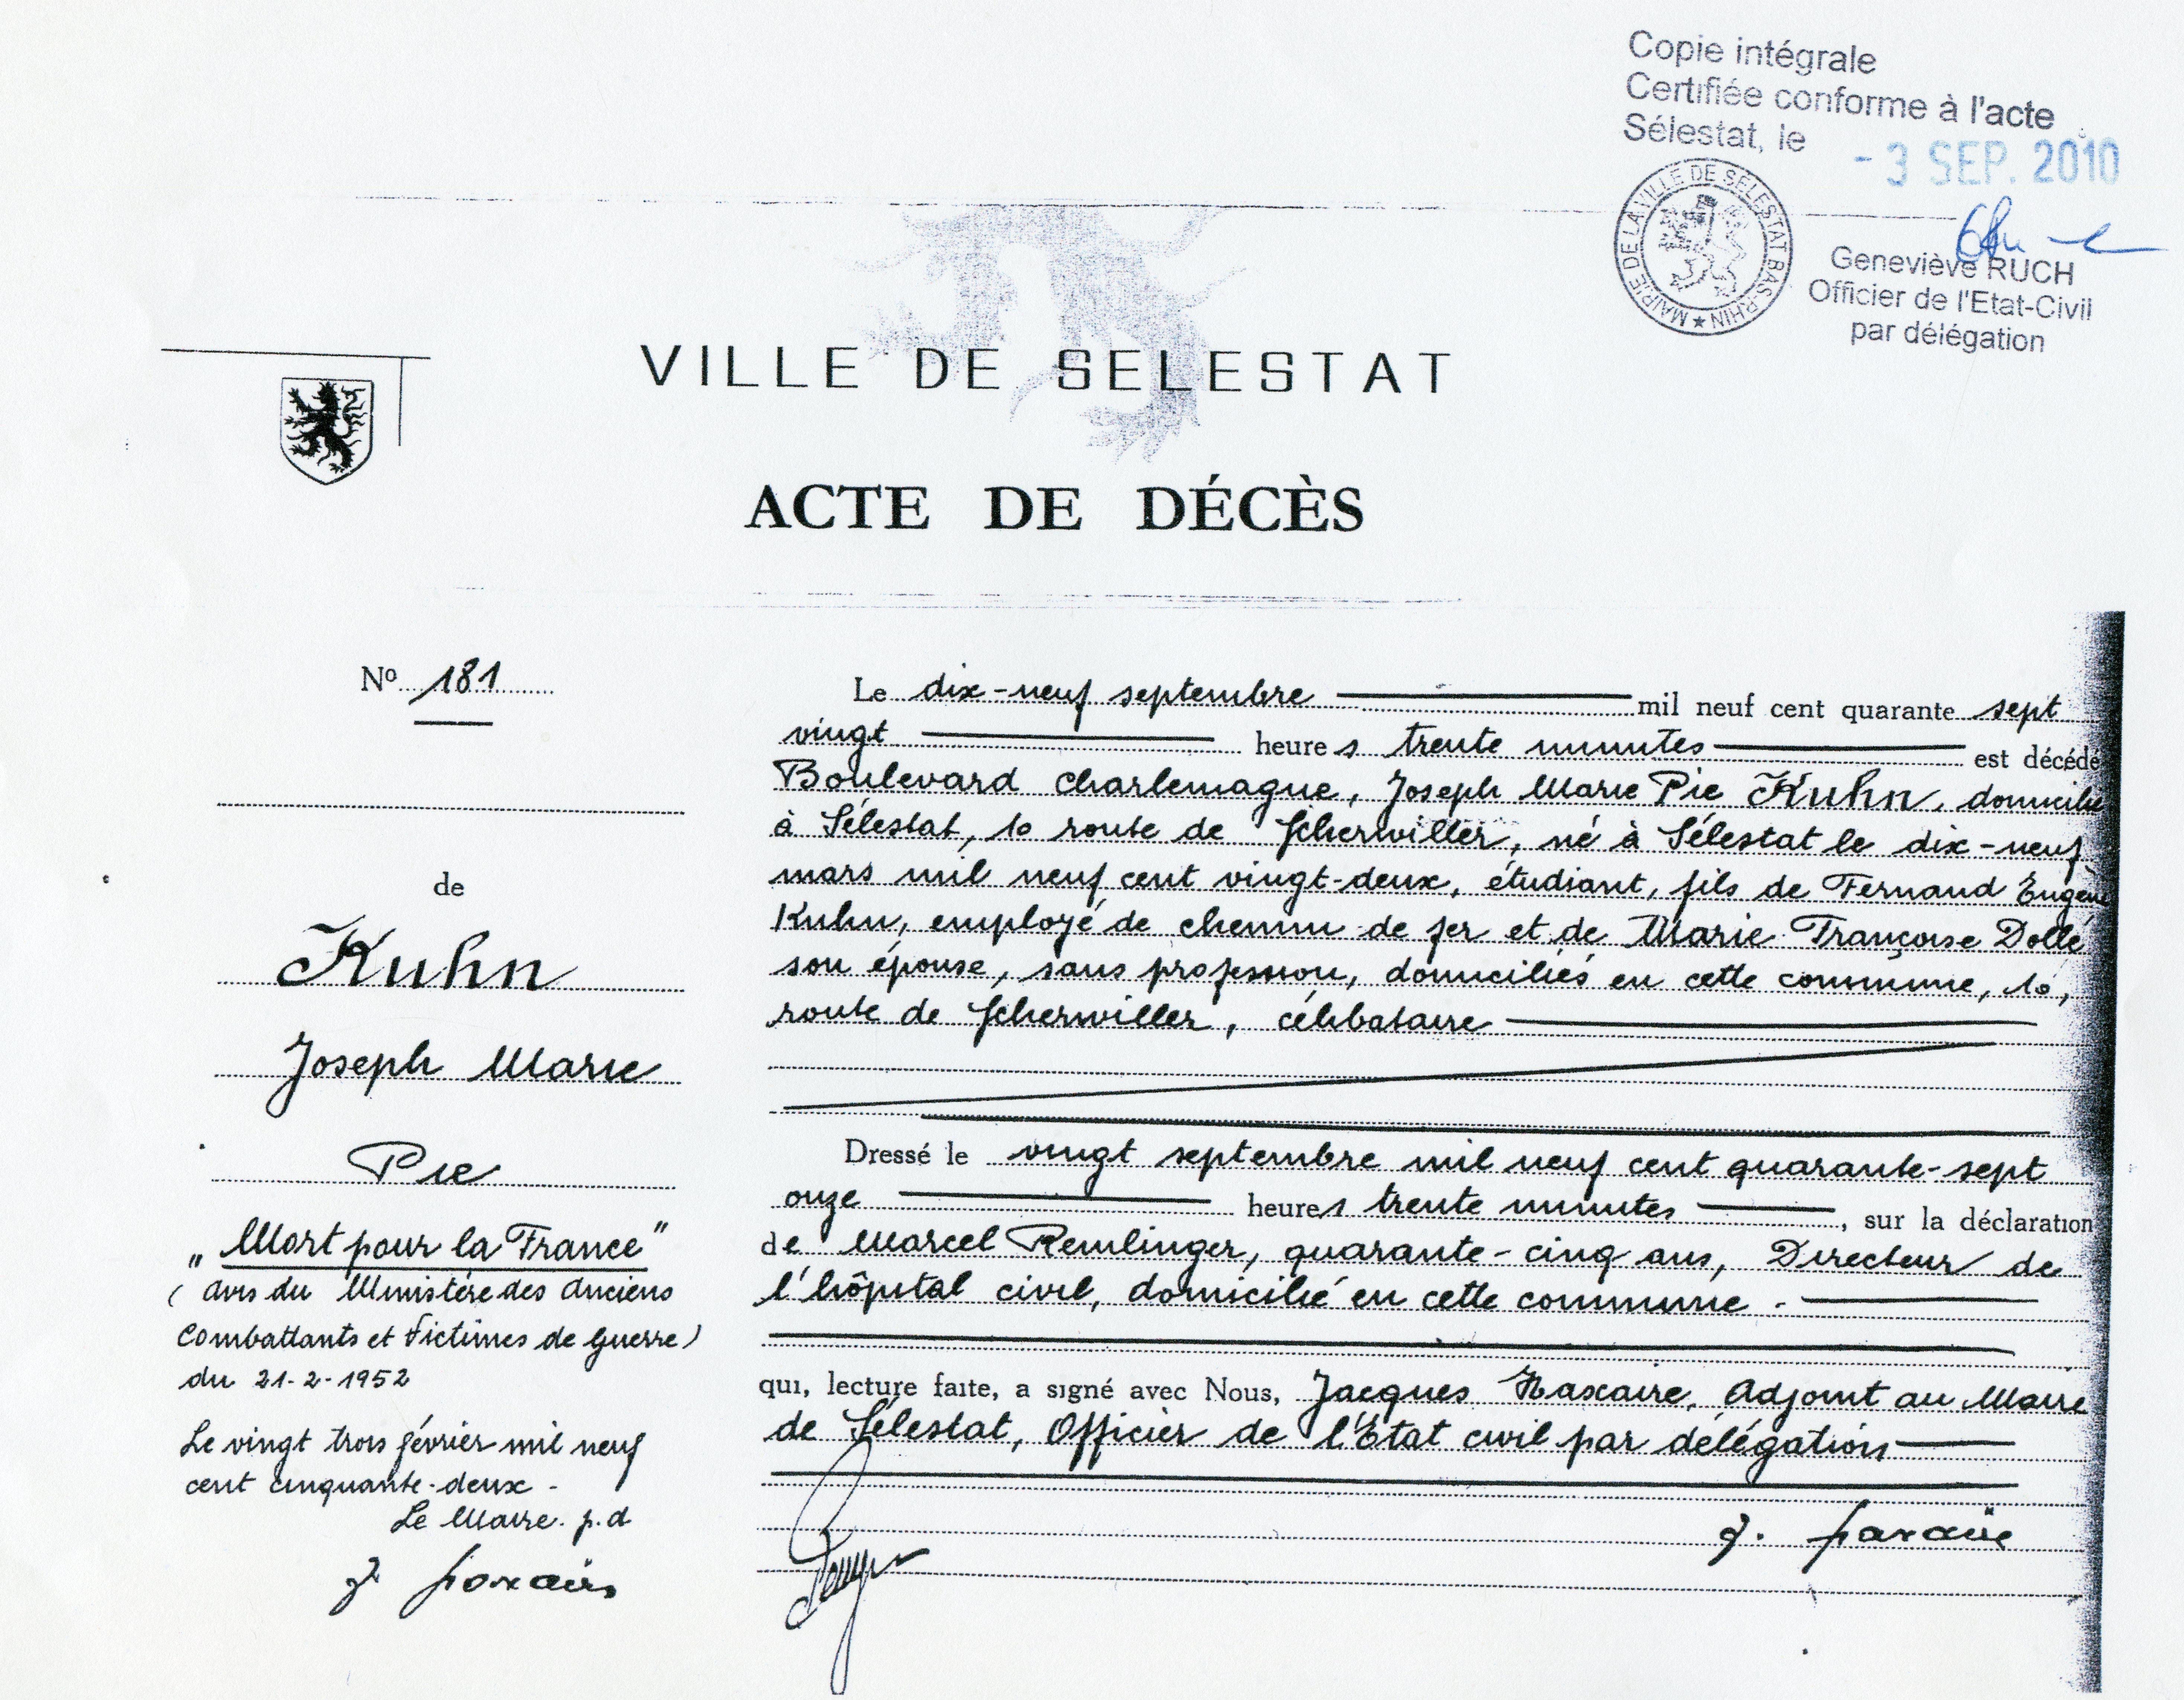 Copie intégrale
Certifiée conforme à l'acte
Sélestat, le
- 3 SEP. 2010
MAIRIE DE LA VILLE DE SÉLESTAT BAS-RHIN ★
Geneviève RUCH
Officier de l'Etat-Civil
par délégation
VILLE DE SELESTAT
ACTE DE DÉCÈS
Nº 181
de
Kuhn
Joseph Marie
Pie
„ Mort pour la France "
( avis du Ministère des Anciens
Combattants et Victimes de Guerre)
du 21-2-1952
Le vingt trois février mil neuf
cent cinquante-deux -
Le Maire. p.d
J. Haxaire
Le dix-neuf septembre mil neuf cent quarante sept
vingt heures trente minutes est décédé
Boulevard Charlemagne, Joseph Marie Pie Kuhn, domicilié
à Sélestat, 10 route de Scherwiller, né à Sélestat le dix-neuf
mars mil neuf cent vingt-deux, étudiant, fils de Fernand Eugène
Kuhn, employé de chemin de fer et de Marie Françoise Dollé
son épouse, sans profession, domiciliés en cette commune, 10,
route de Scherwiller, célibataire
Dressé le vingt septembre mil neuf cent quarante-sept
onze heures trente minutes , sur la déclaration
de Marcel Remlinger, quarante-cinq ans, Directeur de
l'hôpital civil, domicilié en cette commune .
qui, lecture faite, a signé avec Nous, Jacques Haxaire, Adjoint au Maire
de Sélestat, Officier de l'Etat civil par délégation
J. Haxaire